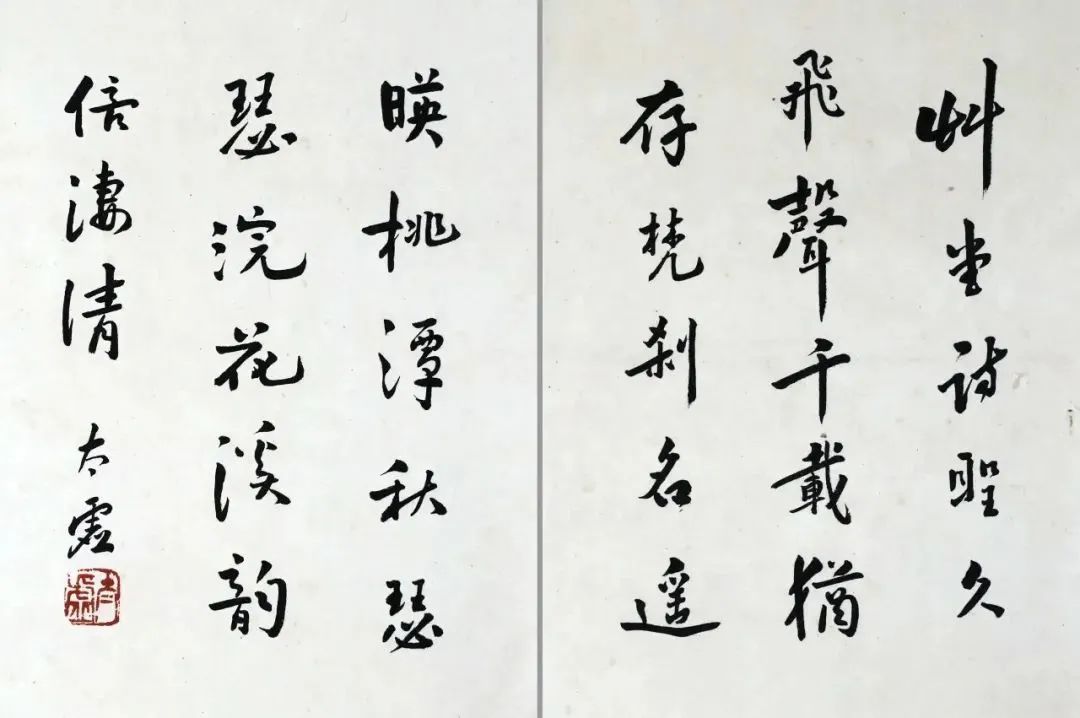 艸堂诗聖久
飛聲千載猶
存梵刹名遥
暎桃潭秋瑟
瑟浣花溪韵
倍淒清
太虛